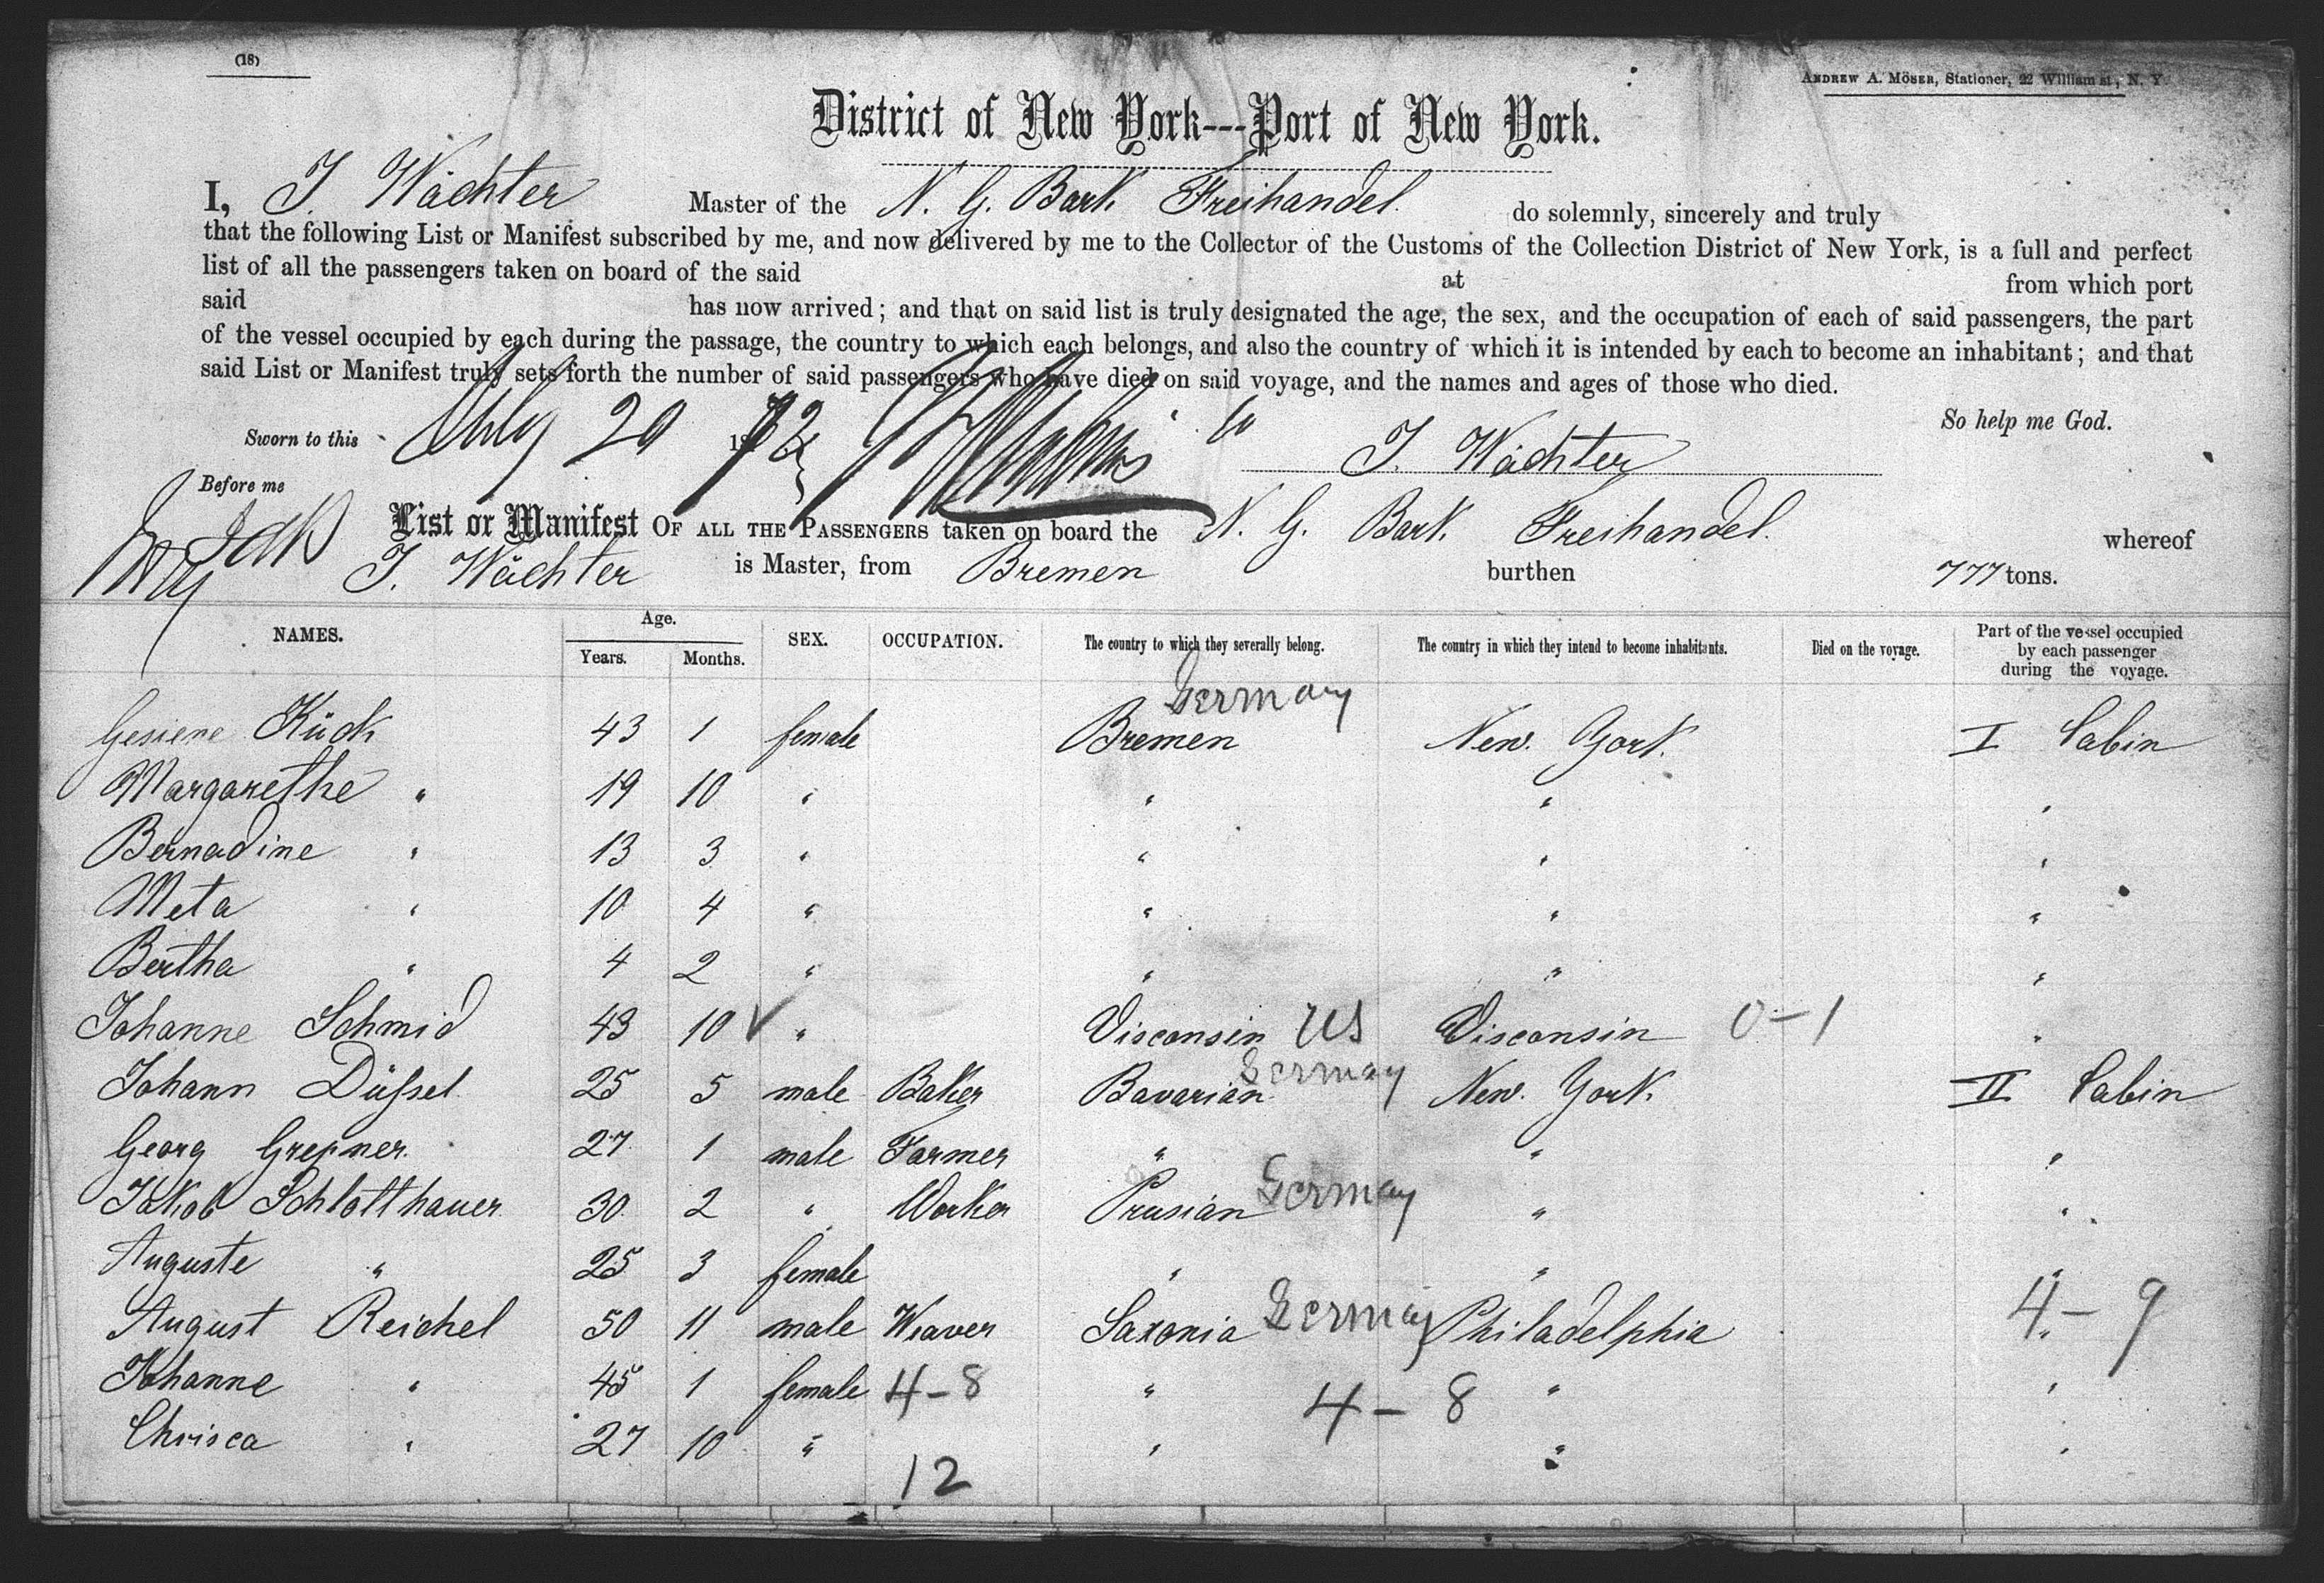 (18)
ANDREW A. MÖSER, Stationer, 22 William st, N. Y
District of New York---Port of New York.
I, J. Wächter Master of the N. G. Bark Freihandel. do solemnly, sincerely and truly
that the following List or Manifest subscribed by me, and now delivered by me to the Collector of the Customs of the Collection District of New York, is a full and perfect
list of all the passengers taken on board of the said at from which port
said has now arrived; and that on said list is truly designated the age, the sex, and the occupation of each of said passengers, the part
of the vessel occupied by each during the passage, the country to which each belongs, and also the country of which it is intended by each to become an inhabitant; and that
said List or Manifest truly sets forth the number of said passengers who have died on said voyage, and the names and ages of those who died.
So help me God.
Sworn to this 20 1872 J. Wächter
Before me
List or Manifest OF ALL THE PASSENGERS taken on board the N. G. Bark. Freihandel. whereof
J. Wächter is Master, from Bremen burthen 777 tons.
NAMES. Age. Years. Months. SEX. OCCUPATION. The country to which they severally belong. The country in which they intend to become inhabitants. Died on the voyage. Part of the vessel occupied by each passenger during the voyage.
Germany
Gesiene Kück 43 1 female Bremen New. York. I Cabin
Margarethe " 19 10 " " " "
Bernadine " 13 3 " " " "
Meta " 10 4 " " " "
Bertha " 4 2 " " " "
Johanne Schmid 43 10 ✓ " Visconsin US Visconsin 0-1 "
Johann Düssel. 25 5 male Baker Bavarian Germany New. York. II Cabin
Georg 27 1 male Farmer " " "
Jakob Schlotthauer 30 2 " Worker Prusian Germany " "
Auguste " 25 3 female " " "
August Reichel 50 11 male Weaver Saxonia Germany Philadelphia " 4-9
Johanne " 45 1 female 4-8 " 4-8 " "
Chrisca " 27 10 " " " "
12